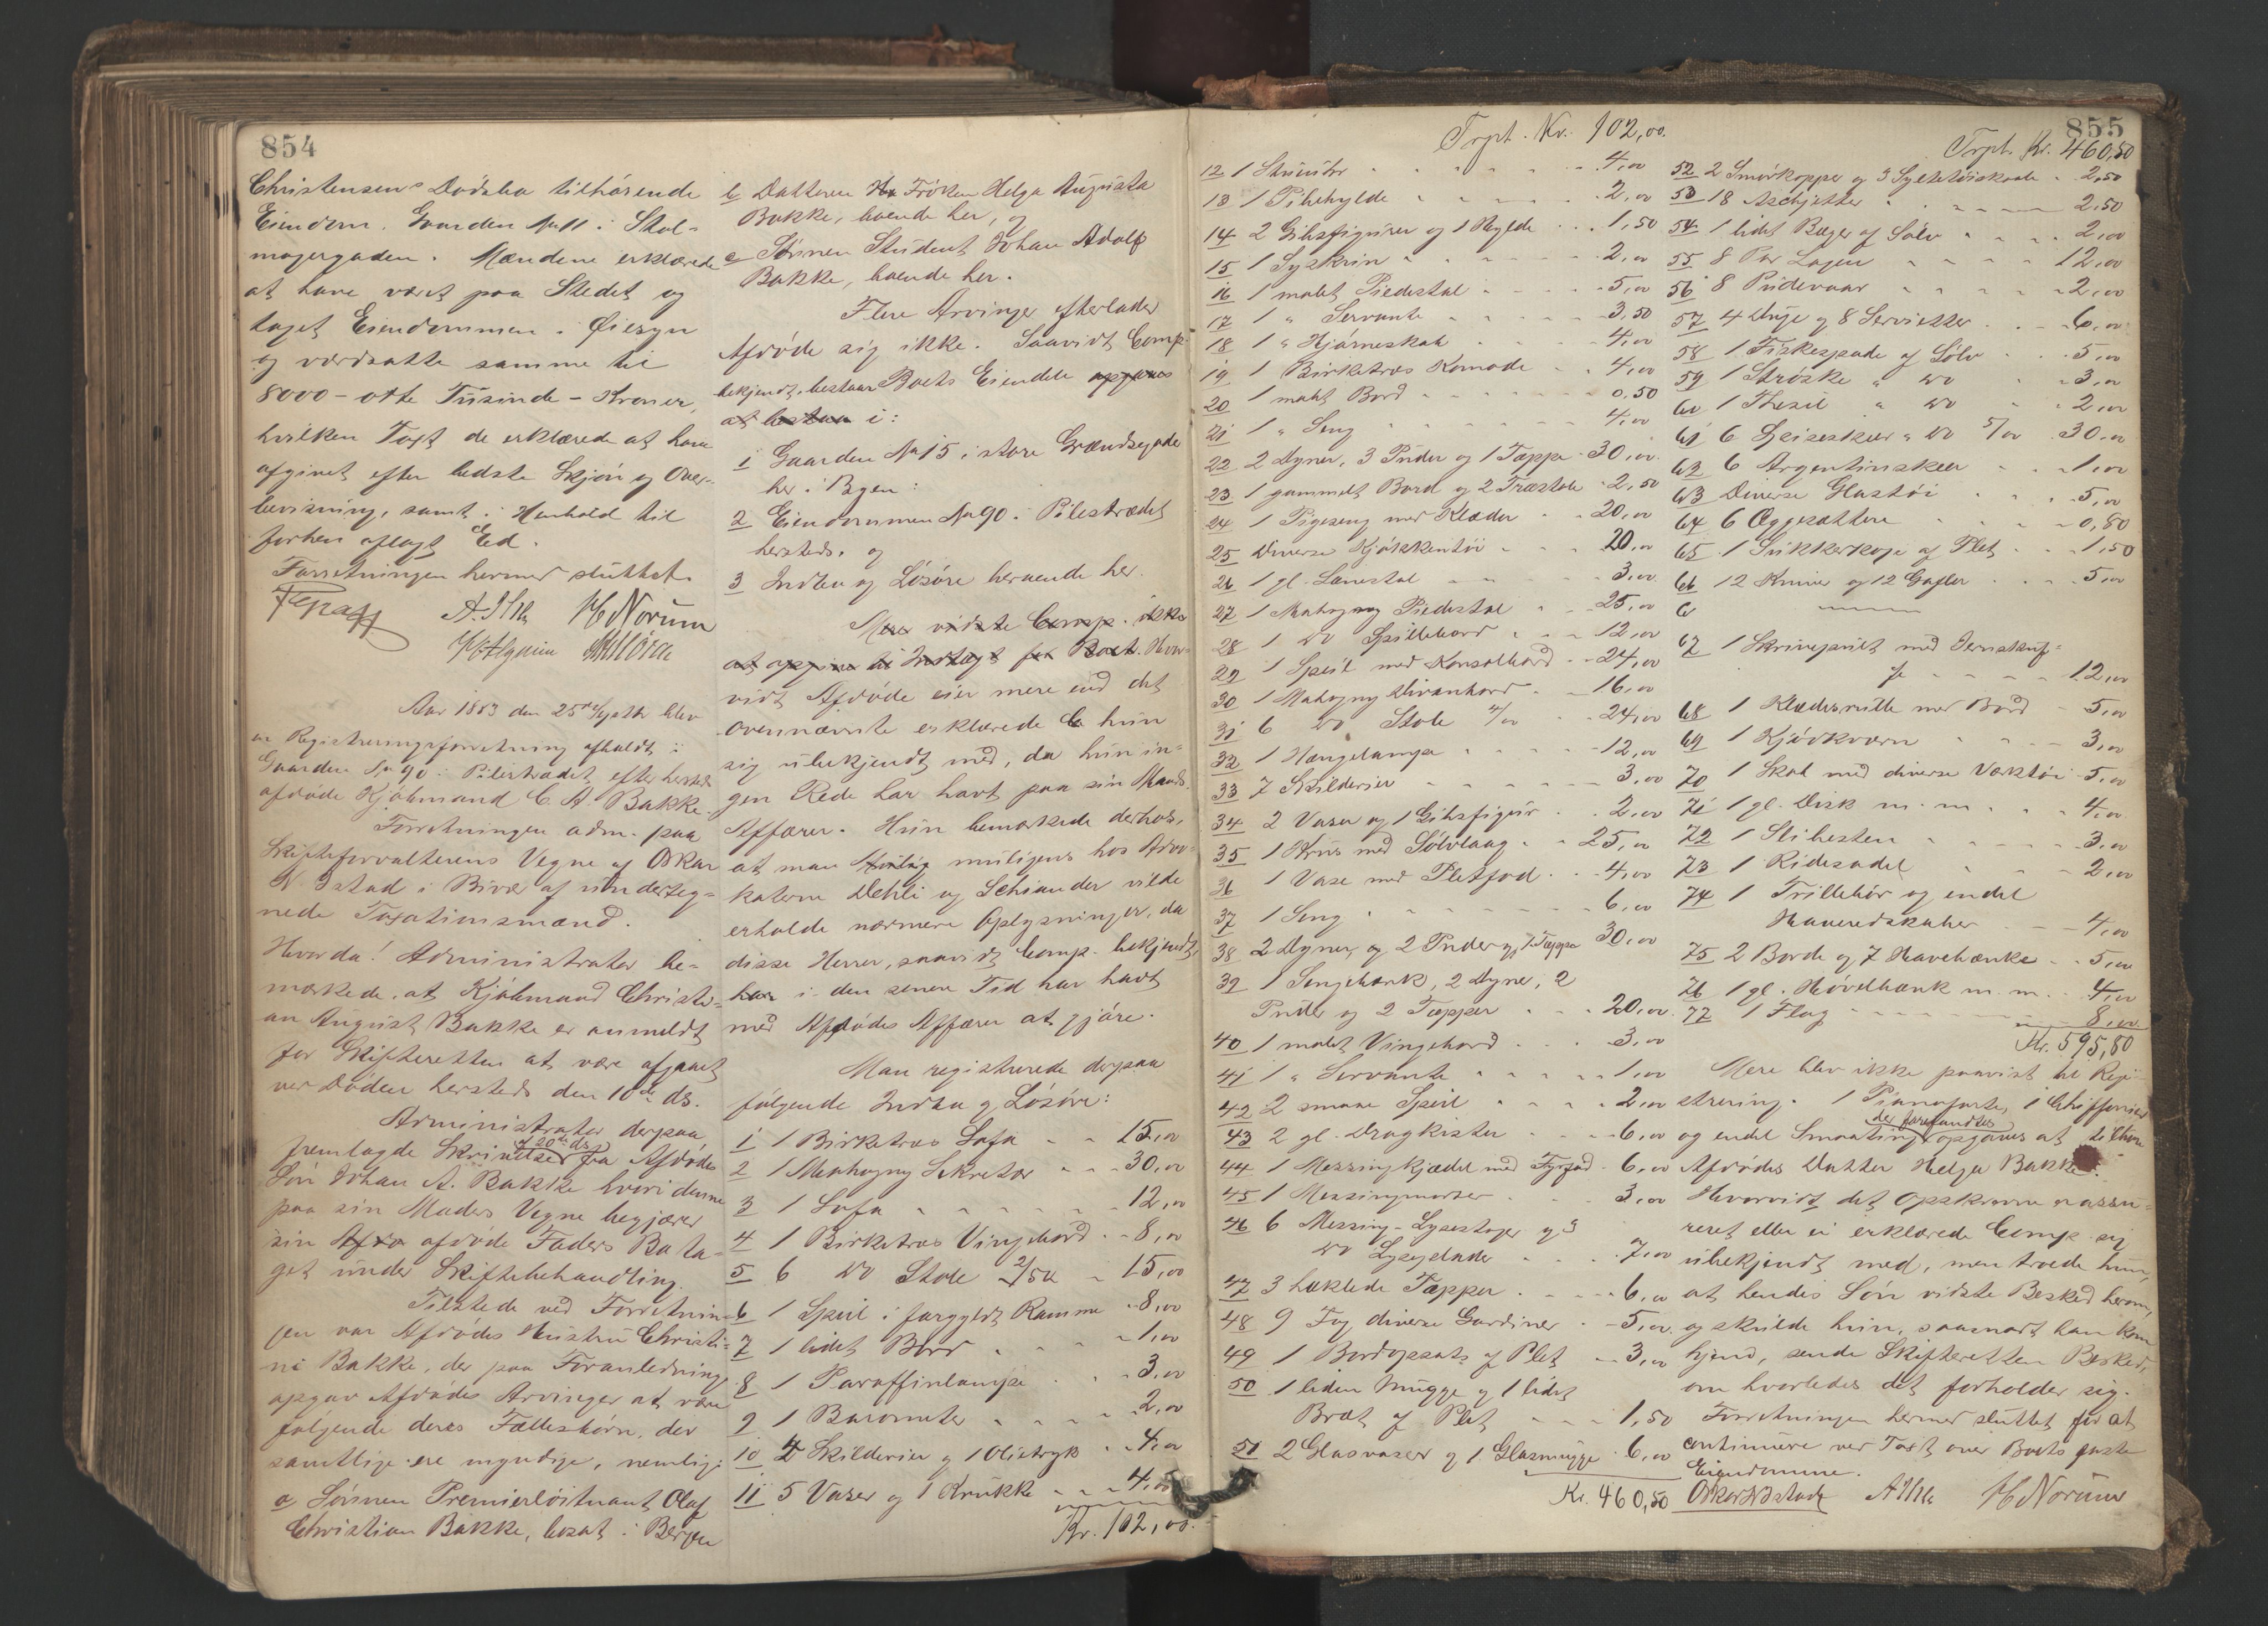 854
Christensens Dødsbo tilhørende
Eiendom, Gaarden No 11 i Skol-
magergaden. Mændene erklærede
at have været paa Stedet og
taget Eiendommen i Øiesyn
og værdsatte samme til
8000 - otte Tusinde - Kroner,
hvilken Taxt de erklærede at have
afgivet efter bedste Skjøn og Over-
bevisning, samt i Henhold til
forhen aflagt Ed.
Forretningen hermed sluttet.
H Norum
Aar 1883 den 25de Septbr blev
en Registreringsforretning afholdt i
Gaarden No 90 i Pilestrædet efter hersteds
afdøde Kjøbmand C. A. Bakke.
Forretningen adm. paa
Skifteforvalterens Vegne af Oskar
N. Bstad i Bivær af underteg-
nede Taxationsmænd.
Hvorda! Administrator be-
mærkede, at Kjøbmand Christi-
an August Bakke er anmeldt
for Skifteretten at være afgaaet
ved Døden hersteds den 10de ds.
Administrator derpaa
fremlagde Skrivelse af 20de ds. fra Afdødes
Søn Johan A. Bakke hvori denne
paa sin Moders Vegne begjærer
sin Afdø afdøde Faders Bo ta-
get under Skiftebehandling.
Tilstede ved Forretnin-
gen var Afdødes Hustru Christi-
ne Bakke, der paa Foranledning
opgav Afdødes Arvinger at være
følgende deres Fællesbørn, der
samtlige ere myndige, nemlig:
a Sønnen Premierløitnant Olaf
Christian Bakke, bosat i Bergen
b Datteren Frøken Helga Augusta
Bakke, boende her, og
c Sønnen Student Johan Adolf
Bakke, boende her.
Flere Arvinger efterlader
Afdøde sig ikke. Saavidt Comp.
bekjendt, bestaar Boets Eiendele opgaves
at bestaa i:
1 Gaarden No 15 i store Grændsegade
her i Byen:
2 Eiendommen No 90 i Pilestrædet
hersteds, og
3 Indbo og Løsøre beroende her.
Mere vidste Comp. ikke
at opgive til Indtægt for Boet. Hvor-
vidt Afdøde eier mere end det
ovennævnte erklærede hun
sig ubekjendt med, da hun in-
gen Rede har havt paa sin Mands
Affærer. Hun bemærkede derhos,
at man muligens hos Advo-
katerne Dehli og Schiander vilde
erholde nærmere Oplysninger, da
disse Herrer, saavidt Comp. bekjendt,
har i den senere Tid har havt
med Afdødes Affærer at gjøre.
Man registrerede derpaa
følgende Indbo og Løsøre:
1 1 Birketræs Sofa 15,00
2 1 Mahogny Sekretær 30,00
3 1 Sofa 12,00
4 1 Birketræs Vingebord 8,00
5 6 do Stole 2/50 15,00
6 1 Speil i forgyldt Ramme 8,00
7 1 lidet Bord 1,00
8 1 Paraffinlampe 3,00
9 1 Barometer 2,00
10 4 Skilderier og 1 Olietryk 4,00
11 5 Vaser og 1 Krukke 4,00
Kr. 102,00.
855
Trpt. Kr. 102,00.
12 1 Stueuhr 4,00
13 1 Pibehylde 2,00
14 2 Gibsfigurer og 1 Hylde 1,50
15 1 Syskrin 2,00
16 1 malet Piedestal 5,00
17 1 " Servante 3,50
18 1 " Hjørneskab 4,00
19 1 Birketræs Komode 4,00
20 1 malet Bord 0,50
21 1 " Seng 4,00
22 2 Dyner, 3 Puder og 1 Tæppe 30,00
23 1 gammelt Bord og 2 Træstole 2,50
24 1 Pigeseng med Klæder 20,00
25 Diverse Kjøkkentøi 20,00
26 1 gl. Lænestol 3,00
27 1 Mahogny Piedestal 25,00
28 1 do Spillebord 12,00
29 1 Speil med Konsolbord 24,00
30 1 Mahogny Divanbord 16,00
31 6 do Stole 4/00 24,00
32 1 Hængelampe 12,00
33 7 Skilderier 3,00
34 2 Vaser og 1 Gibsfigur 2,00
35 1 Krus med Sølvlaag 25,00
36 1 Vase med Pletfod 4,00
37 1 Seng 6,00
38 2 Dyner, og 2 Puder og 1 Tæppe 30,00
39 1 Sengebænk, 2 Dyner, 2
Puder og 2 Tæpper 20,00
40 1 malet Vingebord 3,00
41 1 " Servante 1,00
42 2 smaae Speil 2,00
43 2 gl. Dragkister 6,00
44 1 Messingkjædel med Fyrfad 6,00
45 1 Messingmorter 3,00
46 6 Messing-Lysestager og 3
do Lyseplader 7,00
47 3 heklede Tæpper 6,00
48 9 Fag diverse Gardiner 5,00
49 1 Bordopsats af Plet 3,00
50 1 liden Mugge og 1 lidet
Bræt af Plet 1,50
51 2 Glasvaser og 1 Glasmugge 6,00
Kr. 460,50
Trpt. Kr. 460,50
52 2 Smørkopper og 3 Syltetøiskaale 2,50
53 18 Aschjetter 2,50
54 1 lidet Bæger af Sølv 2,00
55 8 Par Lagen 12,00
56 8 Pudevaar 2,00
57 4 Duge og 8 Servietter 6,00
58 1 Fiskespade af Sølv 5,00
59 1 Strøske " do 3,00
60 1 Thesil " do 2,00
61 6 Spiseskeer " do 5/00 30,00
62 6 Argentinskeer 1,00
63 Diverse Glastøi 5,00
64 6 Æggesættere 0,80
65 1 Sukkerkop af Plet 1,50
66 12 Knive og 12 Gafler 5,00
67 1 Skrivepult med Jernskuf-
fe 12,00
68 1 Klædesrulle med Bord 5,00
69 1 Kjødkværn 3,00
70 1 Skab med diverse Værktøi 5,00
71 1 gl. Disk m. m. 4,00
72 1 Slibesten 3,00
73 1 Ridesadel 2,00
74 1 Trillebør og endel
Haveredskaber 4,00
75 2 Borde og 7 Havebænke 5,00
76 1 gl. Høvelbænk m. m. 4,00
77 1 Flag 8,00
Kr. 595,80
Mere blev ikke paavist til Regi-
strering. 1 Pianoforte, 1 Chiffonier
og endel Smaating der forefandtes opgaves at tilhøre
Afdødes Datter Helga Bakke.
Hvorvidt det Opskrevne er assu-
reret eller ei erklærede Comp. sig
ubekjendt med, men troede hun,
at hendes Søn vidste Besked herom,
og skulde hun, saasnart han kom
hjem, sende Skifteretten Besked,
om hvorledes det forholder sig.
Forretningen hermed sluttet for at
continuere ved Taxt over Boets faste
Eiendomme.
H Norum